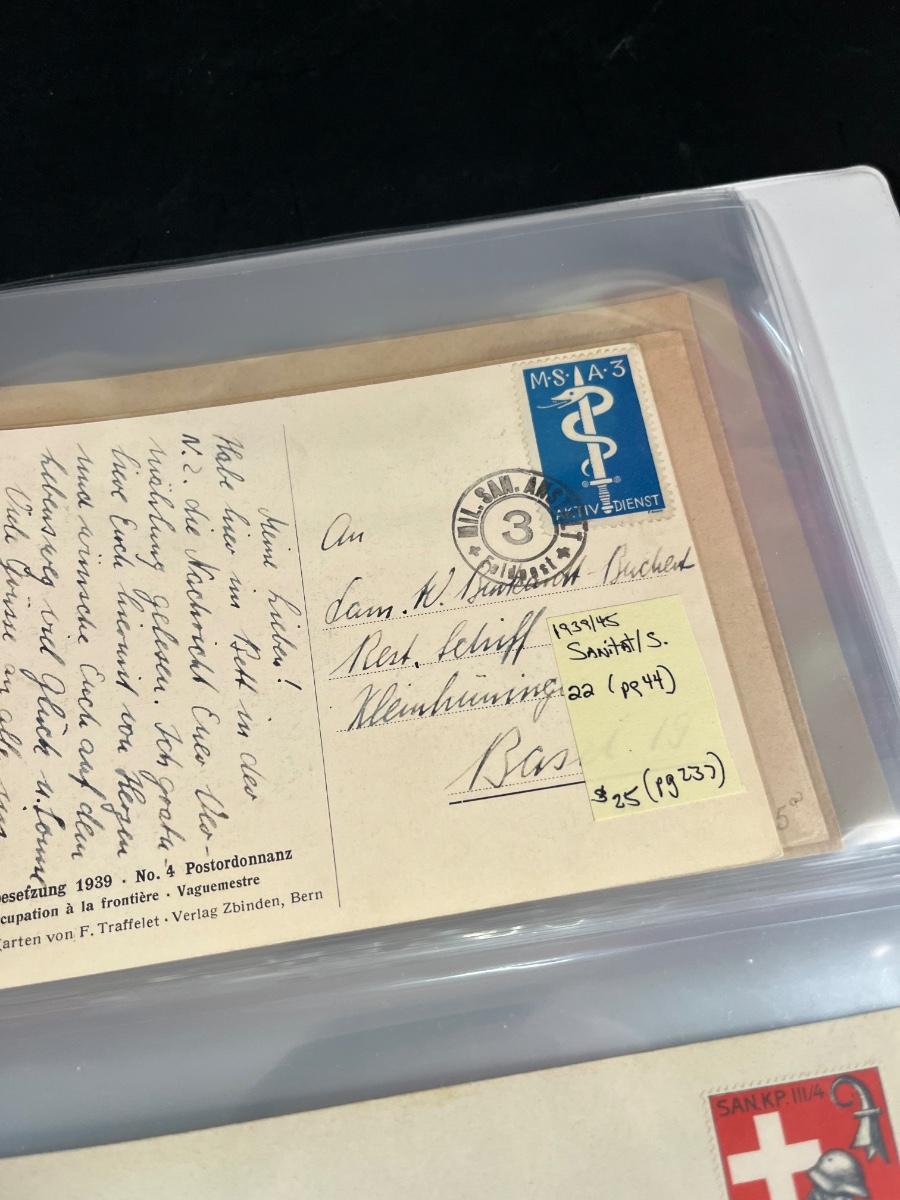 M·S·A·3
AKTIV DIENST
MIL. SAN. ANSTALT
3
Feldpost
Meine Lieben!
Habe hier im Bett in der
N.Z. die Nachricht Euer Ver-
mählung gelesen. Ich gratu-
liere Euch hiermit von Herzen
und wünsche Euch auf dem
Lebensweg viel Glück u. Sonne
Viele Grüsse an alle
An
Fam. W. Burkhardt-Buchert
Rest. Schiff
Kleinhüning
Bas
1939/45
SANITÄT/S.
22 (pg 44)
$25 (pg 237)
esetzung 1939 · No. 4 Postordonnanz
cupation à la frontière · Vaguemestre
arten von F. Traffelet · Verlag Zbinden, Bern
SAN.KP.III/4